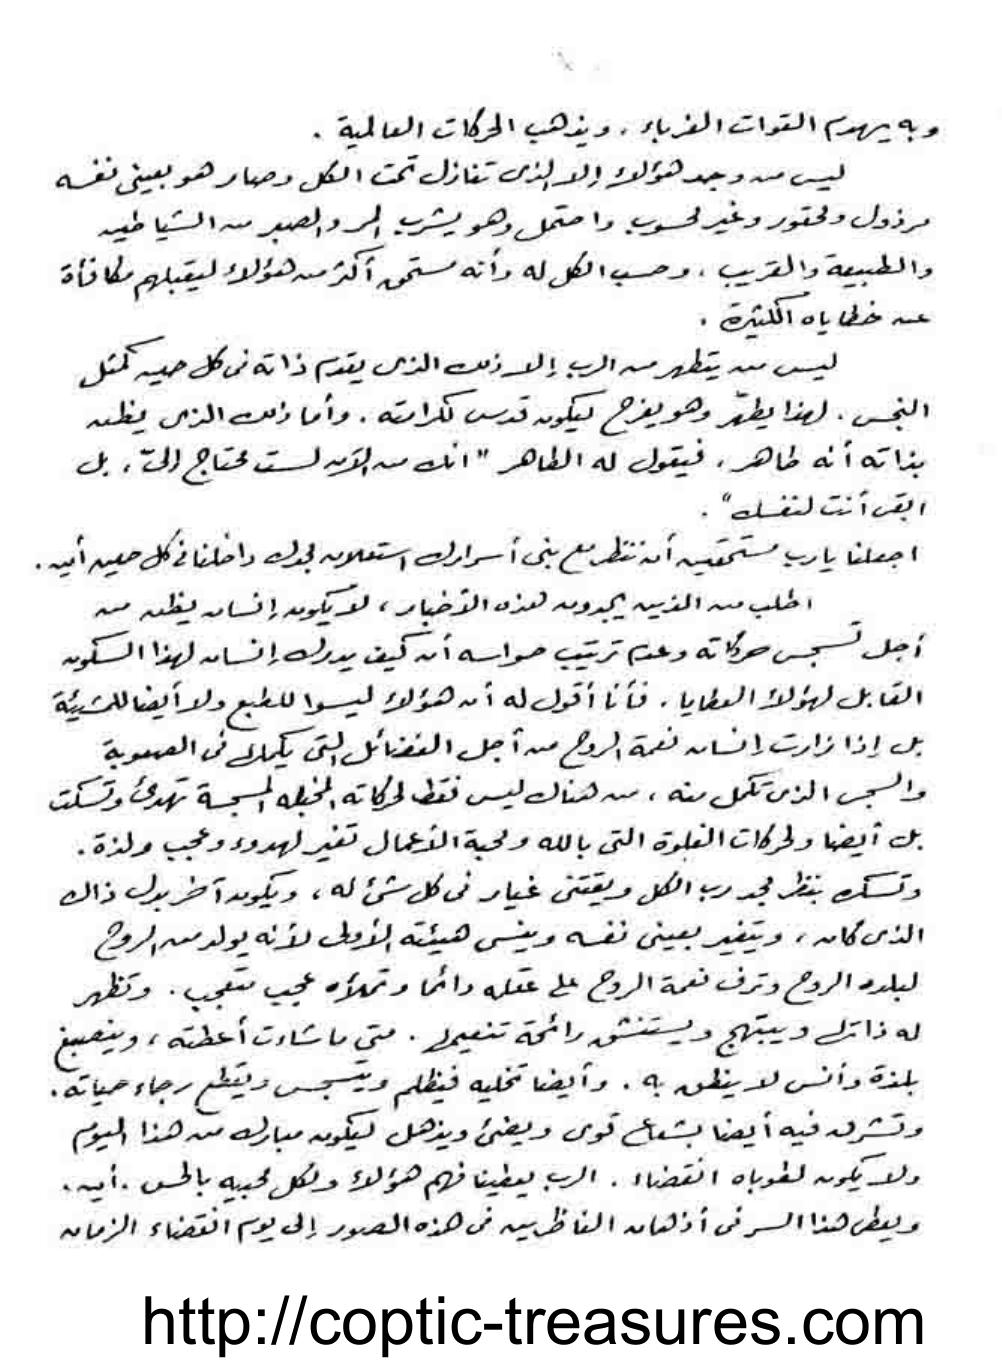 وبه يهدم القوات الغرباء ، ويذهب الحركات العالمية .
ليس من وجد هؤلاء إلا الذى تنازل تحت الكل وصار هو بعينى نفسه
مرذول ومحقور وغير محسوب واحتمل وهو يشرب المر والصبر من الشياطين
والطبيعة والقريب ، وحسب الكل له وأنه مستحق أكثر من هؤلاء ليقبلهم مكافأة
عن خطاياه الكثيرة .
ليس من يتطهر من الرب إلا ذلك الذى يقدم ذاته فى كل حين كمثل
النجس . لهذا يطهّر وهو يفرح ليكون قدس لكرامته . وأما ذلك الذى يظن
بذاته أنه طاهر ، فيقول له الطاهر "انك من الآن لست محتاج إلىّ ، بل
ابقى أنت لنفسك" .
اجعلنا يارب مستحقين أن ننظر مع بنى أسرارك استعلان مجدك داخلنا فى كل حين أمين .
اطلب من الذين يجدون هذه الأخبار ، لا يكون إنسان يظن من
أجل تسجس حركاته وعدم ترتيب حواسه أن كيف يدرك إنسان لهذا السكون
القابل لهؤلاء العطايا . فأنا أقول له أن هؤلاء ليسوا للطبع ولا أيضا للمشيئة
بل إذا زارت إنسان نعمة الروح من أجل الفضائل التى يكملها فى الصعوبة
والسجس الذى تكمل منه ، من هناك ليس فقط لحركاته المسجسة تهدئ وتسكت
بل أيضا ولحركات الفلوة التى بالله ومحبة الأعمال تغير لهدوء وعجب ولذة .
وتسكن بنظر مجد رب الكل ويقتنى غيار فى كل شئ له ، ويكون آخر بدل ذاك
الذى كان ، ويتغير بعينى نفسه وينسى هيئته الأولى لأنه يولد من الروح
لبلد الروح وترف نعمة الروح على عقله دائما وتملأه عجب متعجب . وتظهر
له ذاتها ويبتهج ويستنشق رائحة تنعيمها . متى ما شاءت أعطته ، وينصبغ
بلذة وأنس لا ينطق به . وأيضا تخليه فيظلم ويتسجس ويقطع رجاء حياته .
وتشرق فيه أيضا بشعاع قوى ويضئ ويذهل ليكون مبارك من هذا اليوم
ولا يكون لطوباه انقضاء . الرب يعطينا فهم هؤلاء ولكل محبيه بالحس . أمين .
ويعطى هذا السر فى أذهان الناظرين فى هذه الصور إلى يوم انقضاء الزمان
http://coptic-treasures.com